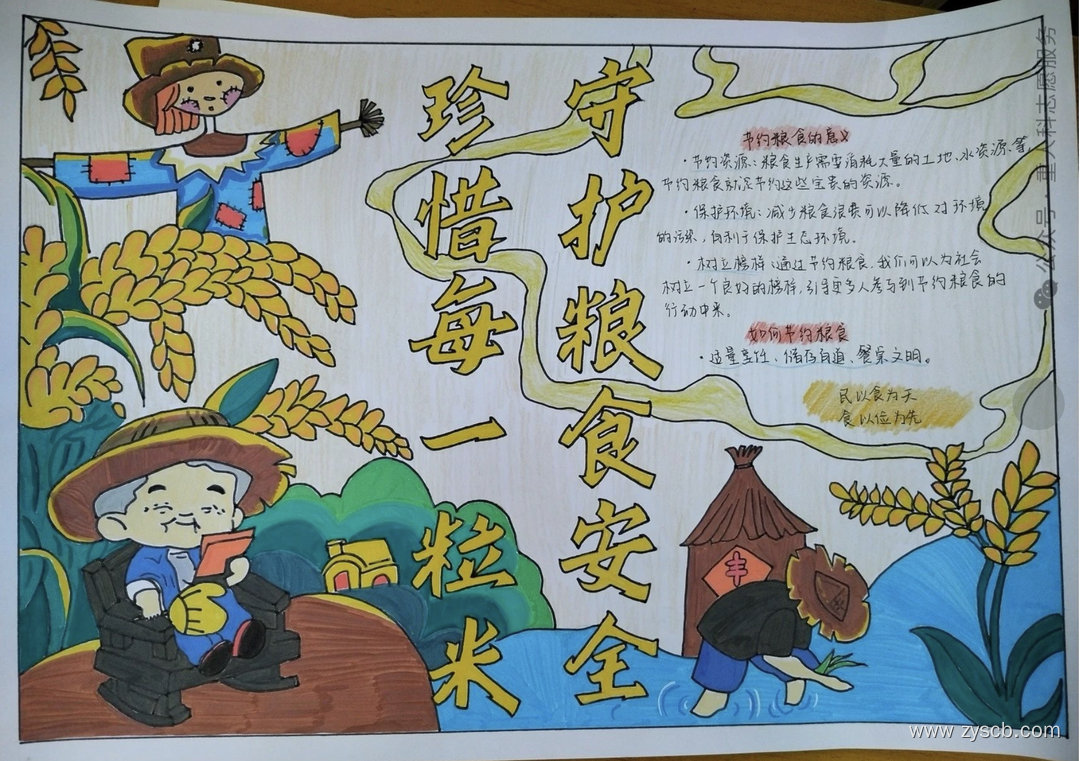 守护粮食安全
珍惜每一粒米
节约粮食的意义
·节约资源：粮食生产需要消耗大量的土地、水资源、等
节约粮食就是节约这些宝贵的资源。
·保护环境：减少粮食浪费可以降低对环境
的污染，有利于保护生态环境。
·树立榜样：通过节约粮食，我们可以为社会
树立一个良好的榜样，引导更多人参与到节约粮食的
行动中来。
如何节约粮食
·适量烹饪、储存有道、餐桌文明。
民以食为天
食以位为先
丰
公众号·重人科志愿服务
www.zyscb.com